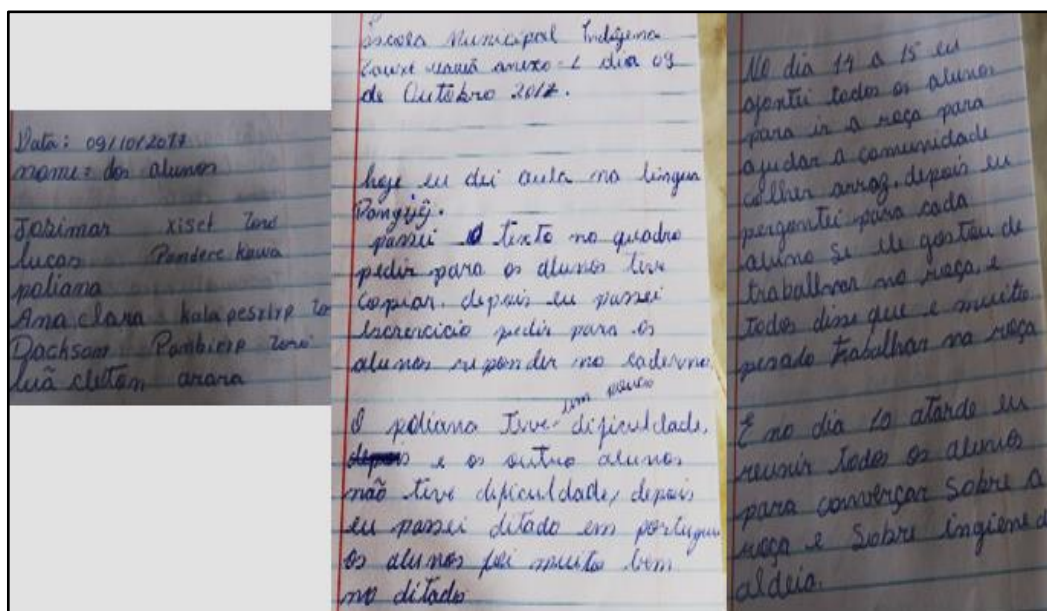 Data: 09/10/2017
nome: dos alunos
Josimar xiset Zoró
lucas Pandere kawa
poliana
Ana clara
Dackson Zoró
luã cleiton arara
Escola Municipal Indígena
anexo-1 dia 09
de Outubro 2017.
hoje eu dei aula na língua
Pangỹjẽj.
passei o texto no quadro
pedir para os alunos tive
copiar. depois eu passei
escrercicio pedir para os
alunos reponder no caderno
um pouco
O poliana teve dificuldade,
e os outro alunos
não tive dificuldade, depois
eu passei ditado em portugues
os alunos foi muito bem
no ditado
No dia 14 a 15 eu
ajontei todos os alunos
para ir a roça para
ajudar a comunidade
colher arroz. depois eu
perguntei para cada
aluno se ele gostou de
trabalhar na roça, e
todos disse que e muito
pesado trabalhar na roça
E no dia 10 atarde eu
reunir todos os alunos
para converçar sobre a
roça e sobre ingiene d
aldeia.